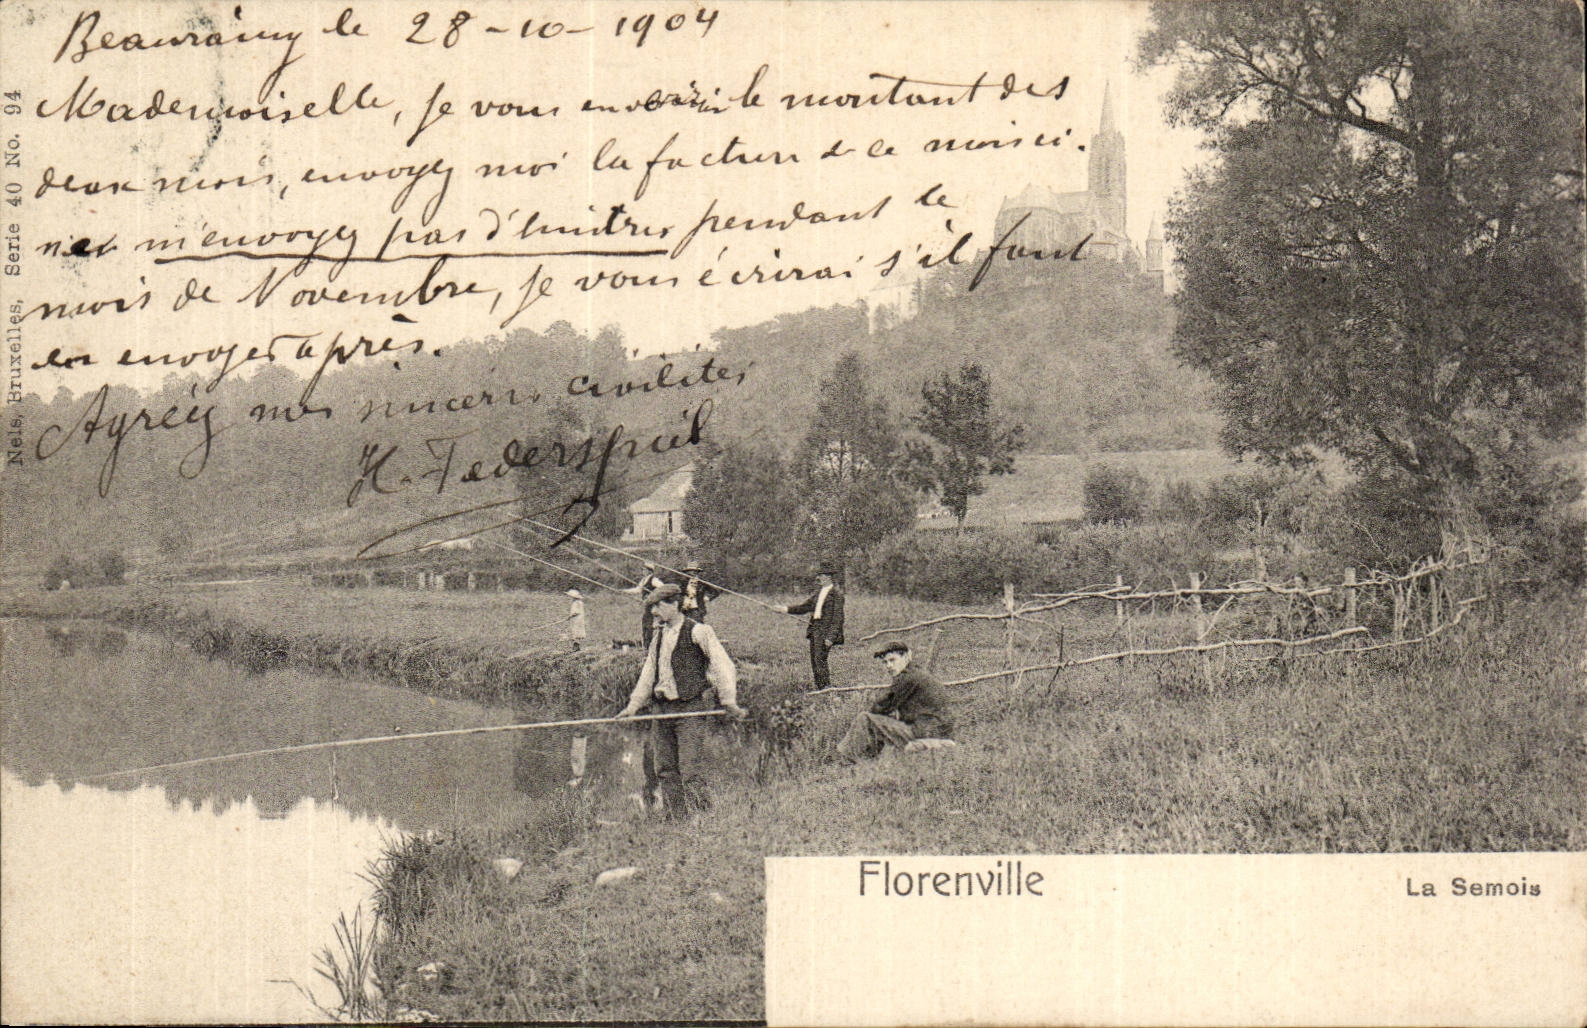 Beauraing le 28-10-1904
Mademoiselle, je vous enverrai le montant des
deux mois, envoyez moi la facture de ce mois ci.
m'envoyez pas d'huitres pendant le
mois de Novembre, je vous écrirai s'il faut
en envoyer après.
Agréez mes sincères civilités
H. Federspiel
Nels, Bruxelles, Serie 40 No. 94
Florenville
La Semois